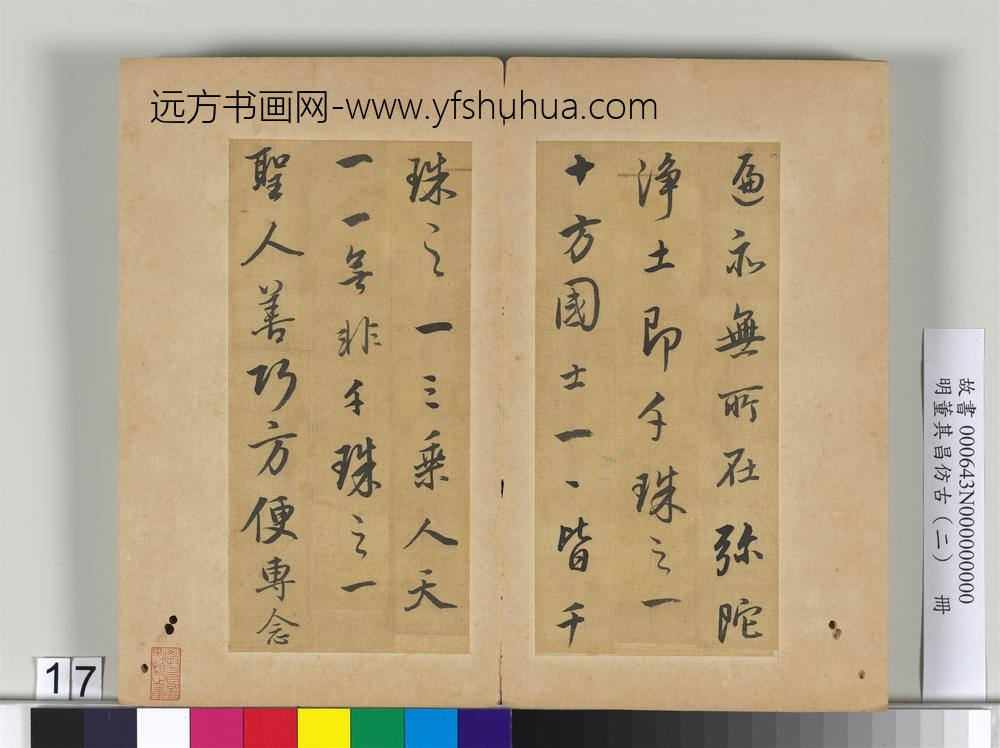 远方书画网-www.yfshuhua.com
遍亦無所在弥陀
淨土即千珠之一
十方國土一一皆千
珠之一三乘人天
一一無非千珠之一
聖人善巧方便專念
故書 000643N000000000
明董其昌仿古（二） 冊
17